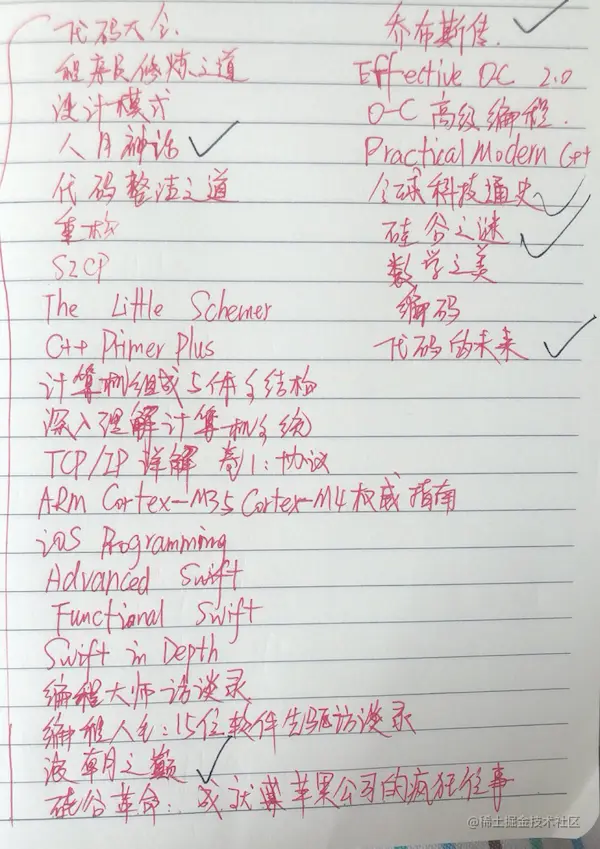 代码大全
程序员修炼之道
设计模式
人月神话
代码整洁之道
重构
SICP
The Little Schemer
C++ Primer Plus
计算机组成与体系结构
深入理解计算机系统
TCP/IP 详解 卷1:协议
ARM Cortex-M3与Cortex-M4权威指南
iOS Programming
Advanced Swift
Functional Swift
Swift in Depth
编程大师访谈录
编程人生:15位软件先驱访谈录
浪潮之巅
硅谷革命:成就苹果公司的疯狂往事
乔布斯传
Effective OC 2.0
O-C 高级编程.
Practical Modern C++
全球科技通史
硅谷之谜
数学之美
编码
代码的未来
@稀土掘金技术社区